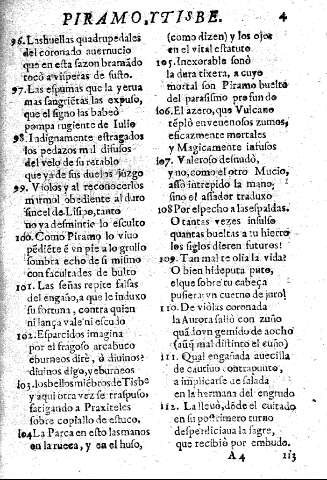 PIRAMO, Y TISBE. 4
96. Las huellas quadrupedales
del coronado auernucio
que en esta sazon bramādo
tocò a visperas de susto.
97. Las espumas que la yerua
mas sangriētas las expuso,
que el signo las babeò
pompa rugiente de Iulio
98. Indignamente estragados
los pedazos mal difusos
del velo de su retablo
que ya de sus duelos juzgo
99. Violos y al reconocerlos
marmol obediente al duro
sincel de Lisipo, tanto
no ya desmintio lo esculto
100. Como Piramo lo viuo
pēdiēte ē vn pie a lo grullo
sombra echo de si mismo
con facultades de bulto
101. Las señas repite falsas
del engaño, a que le induxo
su fortuna, contra quien
ni lança vale ni escudo
102. Esparcidos imagina
por el fragoso arcabuco
eburneos dirè, ò diuinos?
diuinos digo, y eburneos
103. los bellos miēbros de Tisbe
y aqui otra vez se traspuso,
fatigando a Praxiteles
sobre copiallo de estuco.
104 La Parca en esto las manos
en la rueca, y en el huso,
(como dizen) y los ojos
en el vital estatuto
105. Inexorable sonò
la dura tixera, a cuyo
mortal son Piramo buelto
del parasismo profundo
106. El azero, que Vulcano
tēplò en venenosos zumos,
eficazmente mortales
y Magicamente infusos
107. Valeroso desnudò,
y no, como el otro Mucio,
assò intrepido la mano,
sino el assador traduxo
108 Por el pecho a las espaldas.
O tantas vezes insulso
quantas bueltas a tu hierro
los siglos dieren futuros!
109. Tan mal te olia la vida?
O bien hideputa puto,
el que sobre tu cabeça
pusiera vn cuerno de juro!
110. De violas coronada
la Aurora saliò con zuño
quādo vn gemido de a ocho
(aūq̄ mal distinto el cuño)
111. Qual engañada auecilla
de cautiuo contrapunto,
a implicarse desalada
en la hermana del engrudo
112. La lleuò, dōde el cuitado
en su postrimero turno
desperdiciaua la sagre,
que recibiò por embudo.
A 4 113